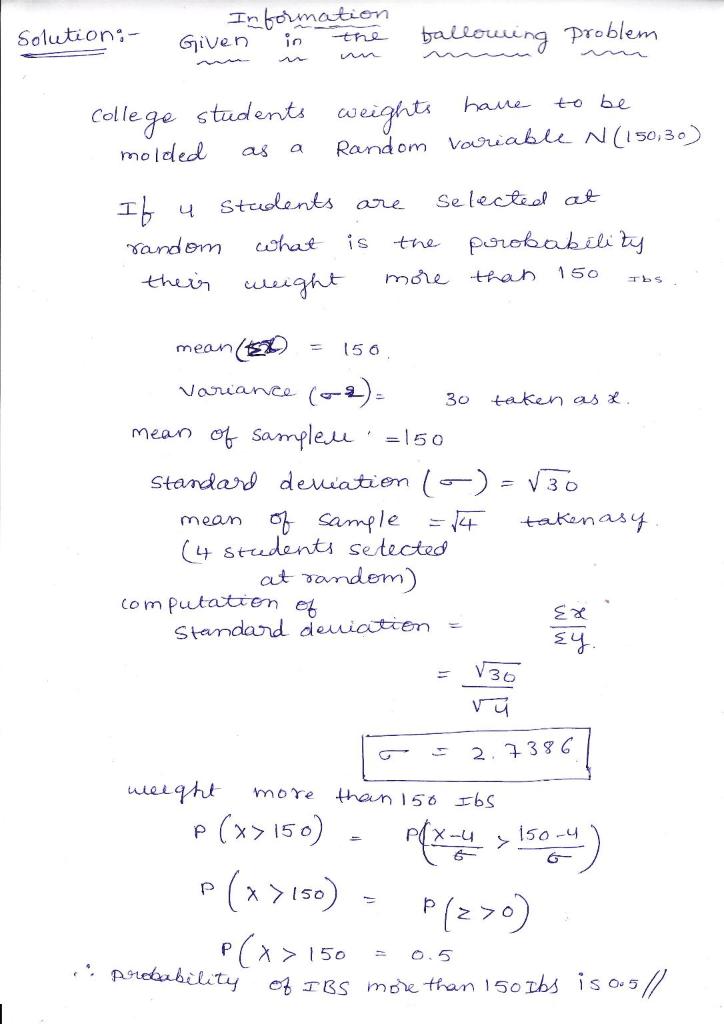 Information
Solution:- Given in the following problem
college students weights have to be
molded as a Random variable N(150,30)
If 4 students are selected at
random what is the probability
their weight more than 150 Ibs.
mean( ) = 150.
Variance (σ2)= 30 taken as x.
mean of sample =150
standard deviation (σ) = √30
mean of sample = √4 taken as y.
(4 students selected
at random)
computation of
standard deviation = Σx/Σy.
= √30/√4
σ = 2.7386
weight more than 150 Ibs
P(x>150) = P(x-4/σ > 150-4/σ)
P(x>150) = P(z>0)
P(x>150 = 0.5
∴ probability of IBS more than 150 Ibs is 0.5//